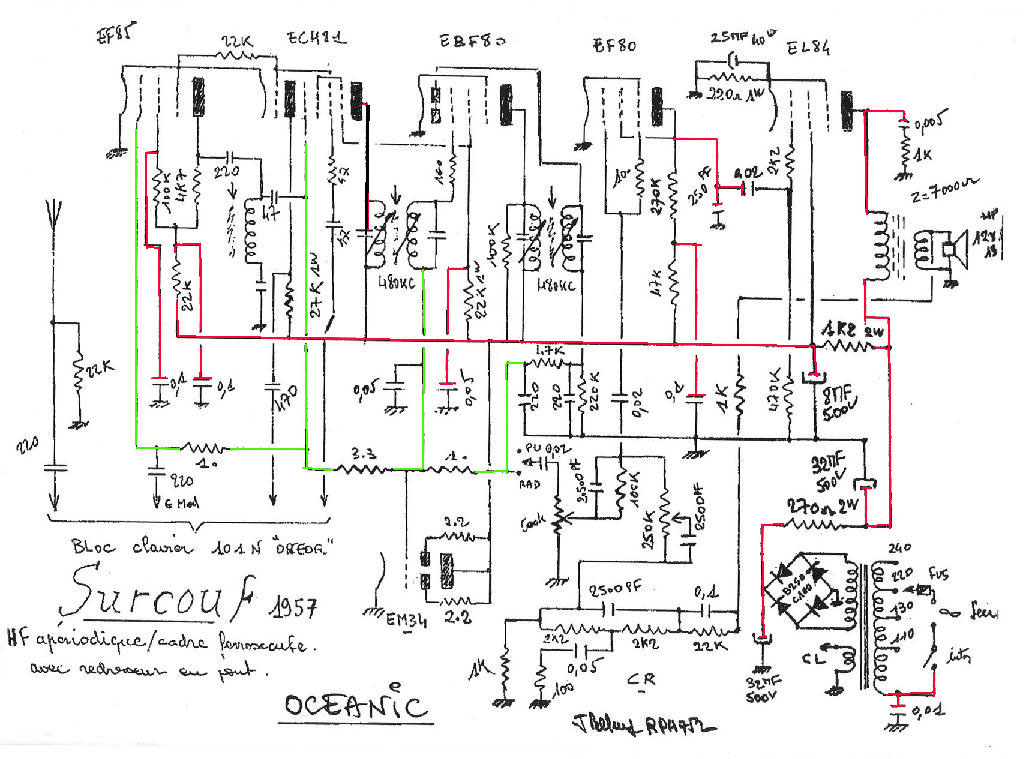 EF85
ECH81
EBF80
EF80
EL84
22K
25MF
40V
220Ω 1W
100K
4K7
220
47
22K
0,1
0,1
27K 1W
470
480KC
480KC
100K
22K 1W
0,05
0,05
270K
47K
250 PF
0,02
2K2
0,005
1K
Z=7000Ω
HP
1K2 2W
8MF
500V
32MF
500V
270Ω 2W
22K
220
220
1.
G Mod
3.3
1.
4.7K
220
220
220K
0,02
0,1
1K
470K
PU
0,02
RAD
500K
2500PF
100K
250K
2500PF
2.2
2.2
EM34
Bloc clavier 101N "OREOR"
Surcouf 1957
HF apériodique/cadre ferroxcube.
avec redresseur en pont.
OCEANIC
2500PF
0,1
2K2
2K2
22K
0,05
1K
100
CR
32MF
500V
B250
C100
CL
240
220
130
110
FUS
inter
0,01